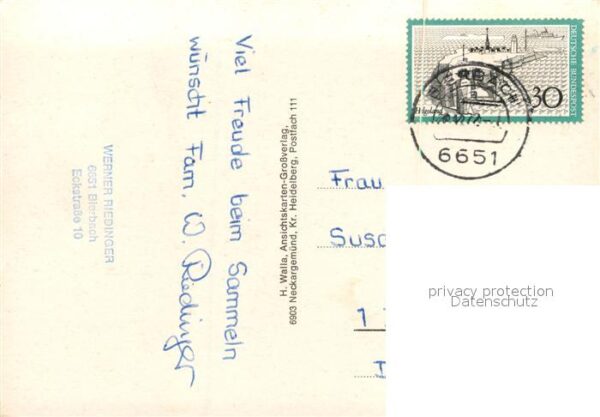 Viel Freude beim Sammeln
wünscht Fam. W. Riedinger
WERNER RIEDINGER
6651 Bierbach
Eckstraße 10
H. Walla, Ansichtskarten-Großverlag,
6903 Neckargemünd, Kr. Heidelberg, Postfach 111
DEUTSCHE BUNDESPOST
Helgoland
30
BIERBACH
6651
Frau
Susa
1
privacy protection
Datenschutz